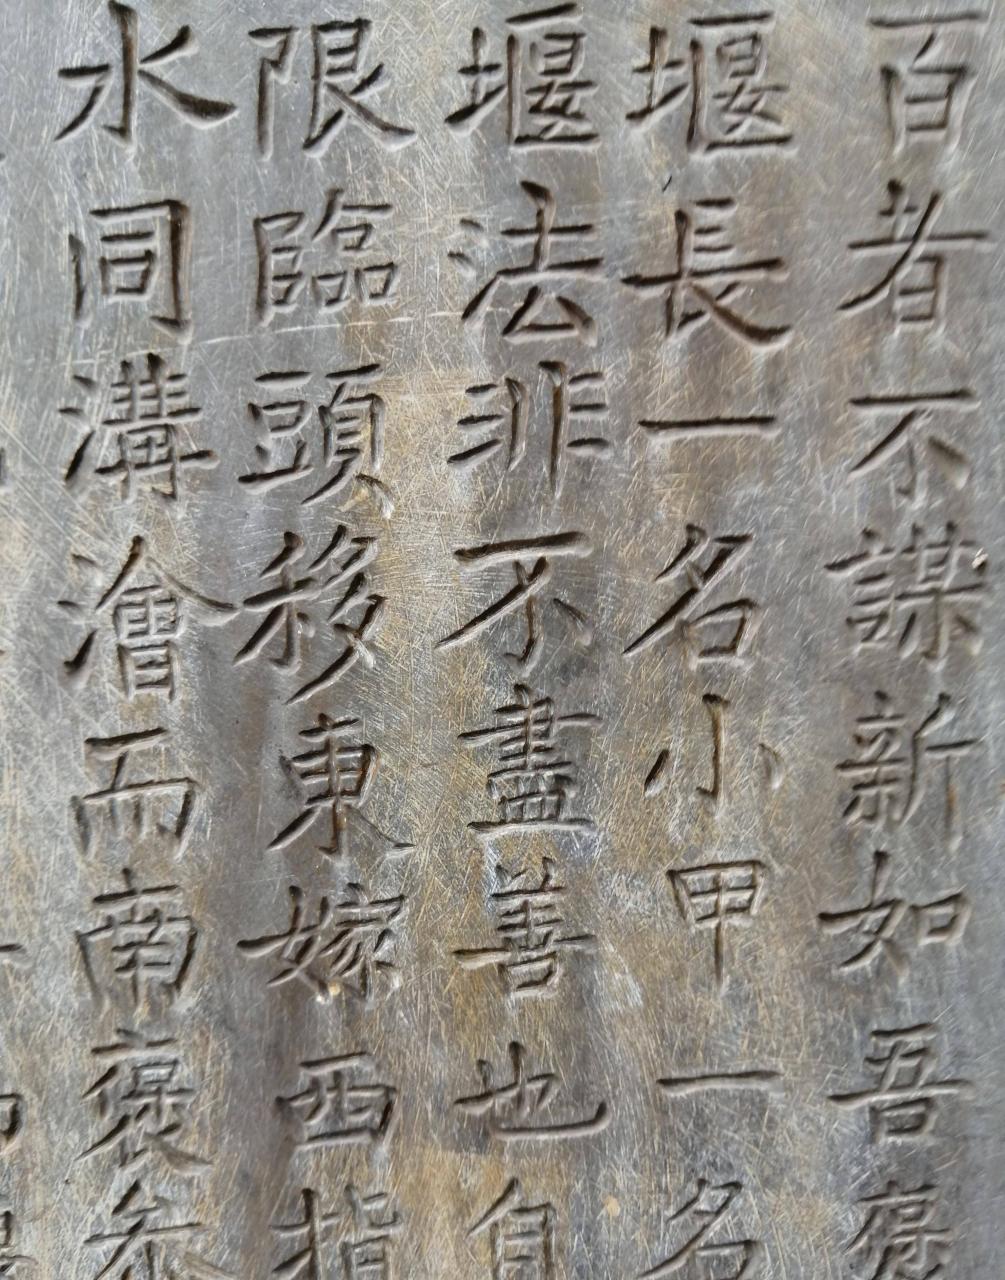 百者不謀新如吾褒
堰長一名小甲一名
堰法非不盡善也自
限臨頭移東嫁西指
水同溝澮而南褒